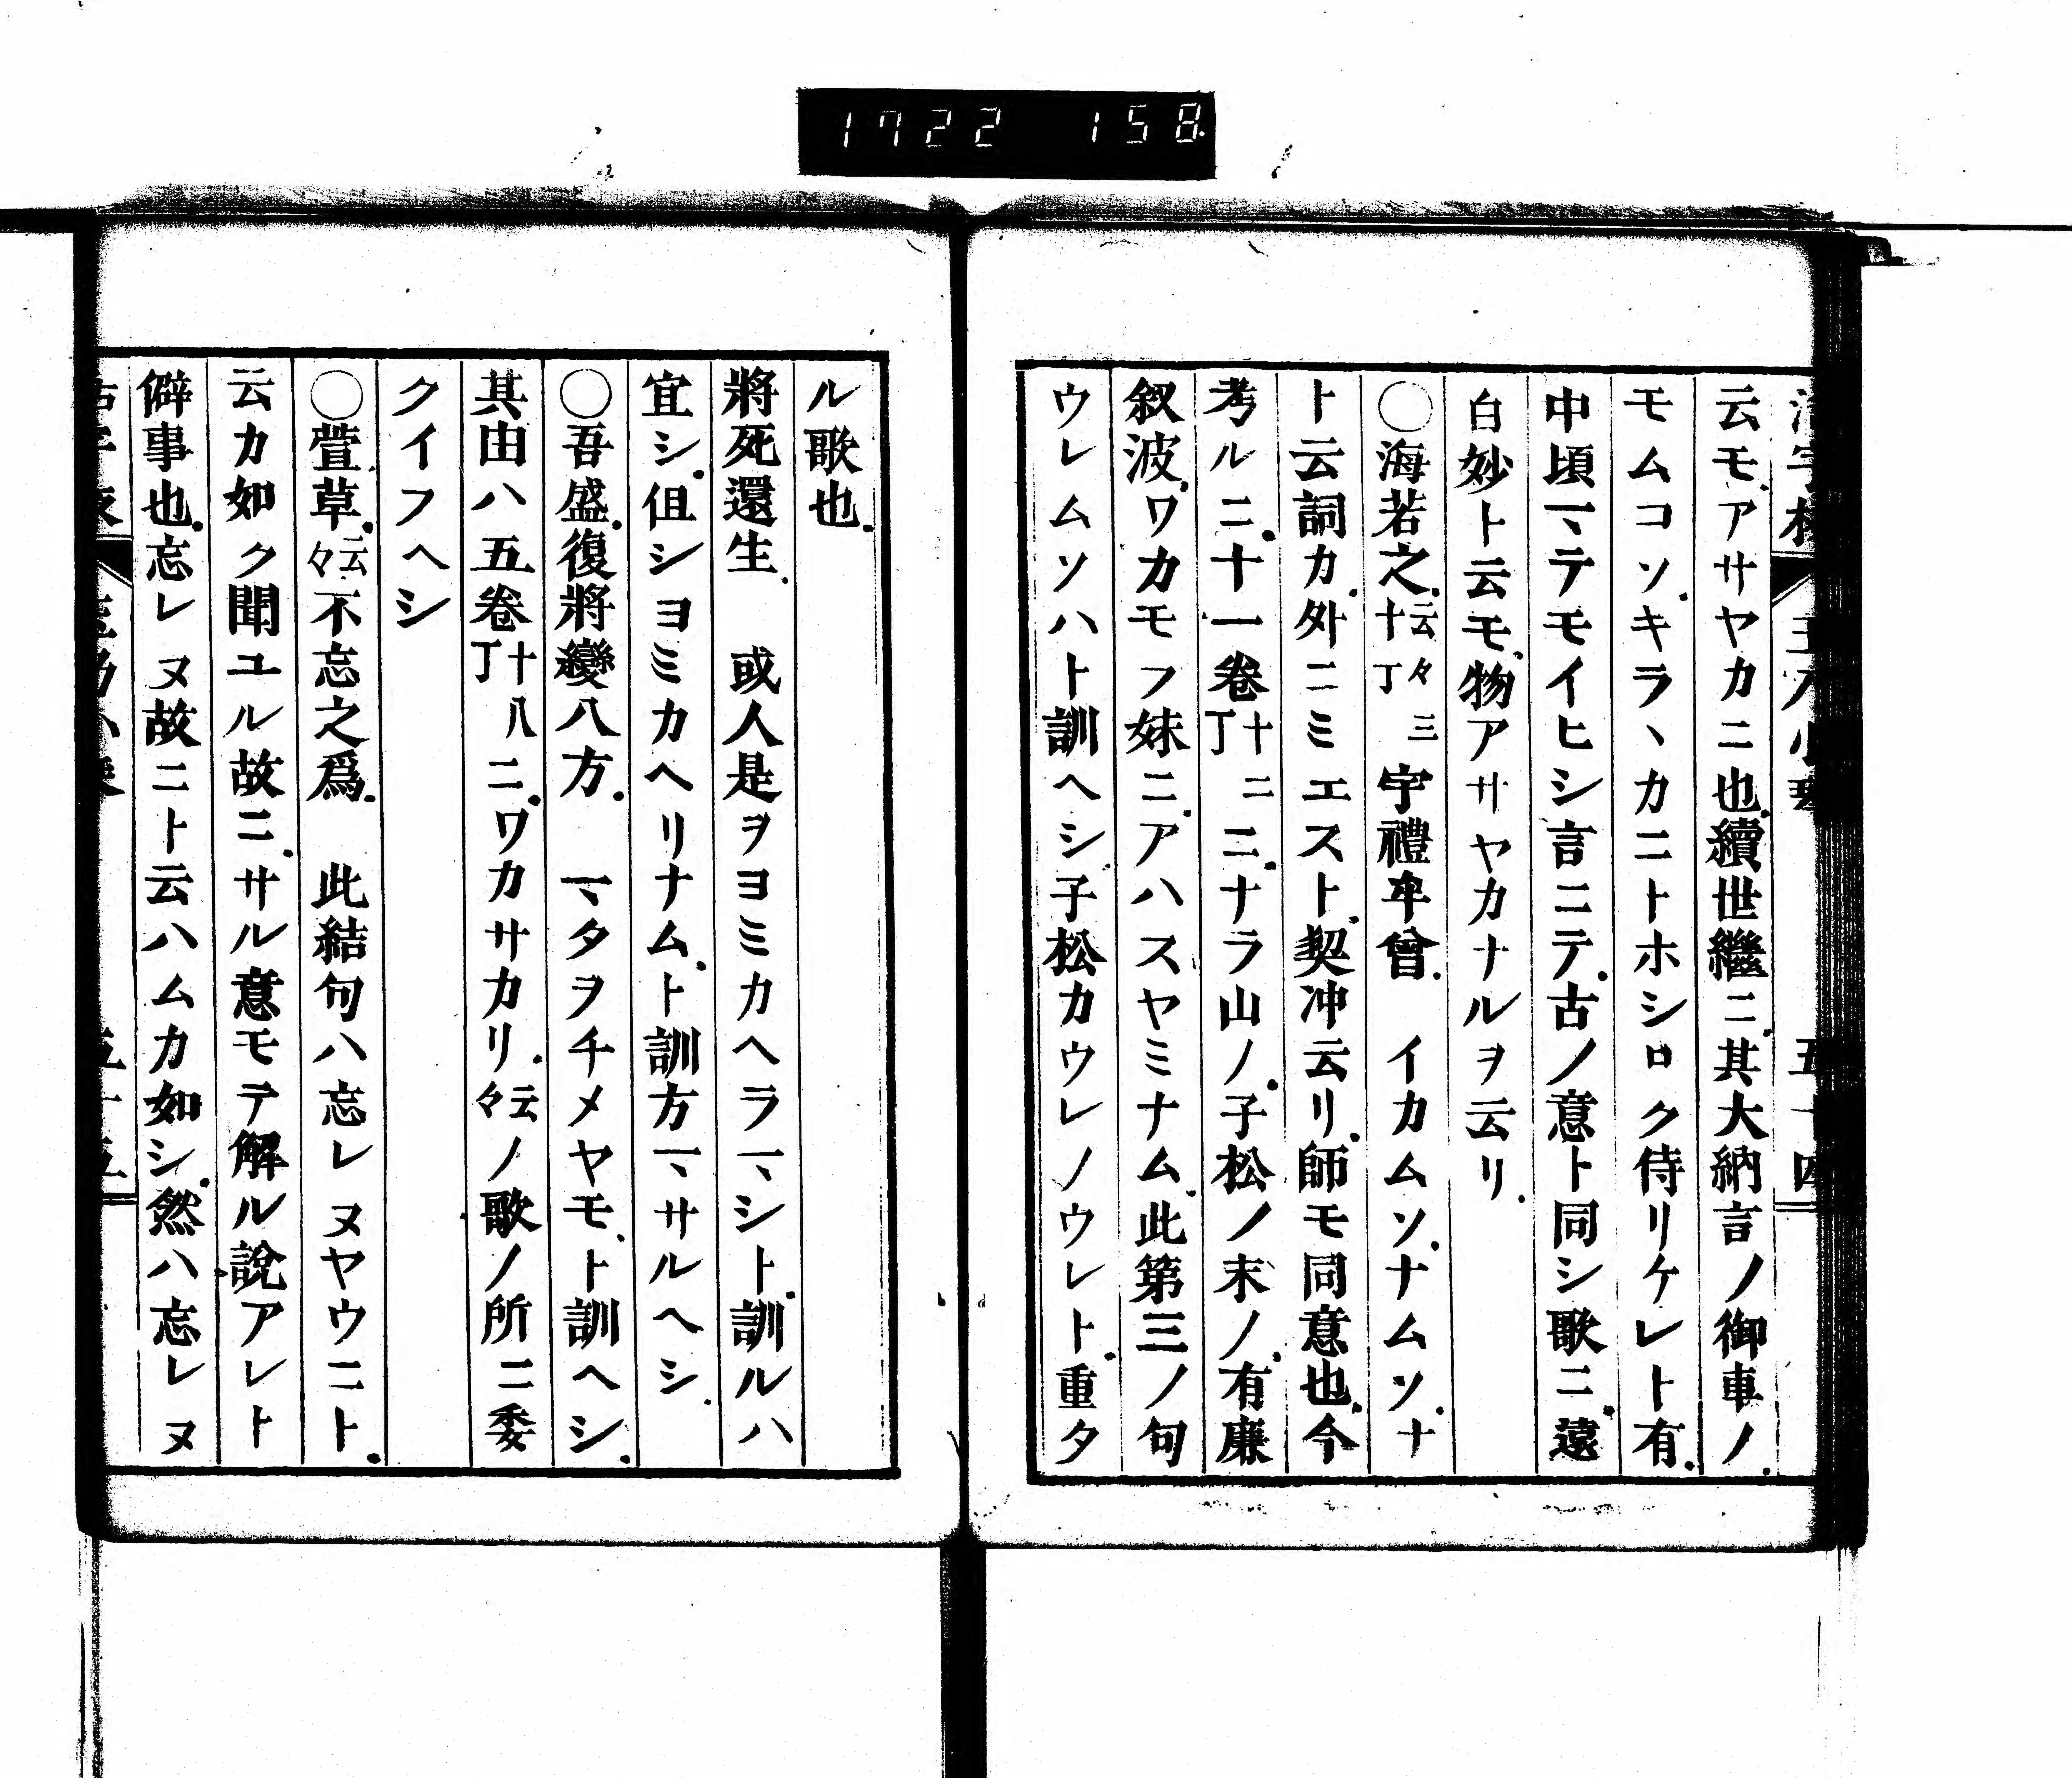 1722 158
云モ、アサヤカニ也、續世繼ニ、其大納言ノ御車ノ、
モムコソ、キラヽカニトホシロク侍リケレト有、
中頃マテモイヒシ言ニテ、古ノ意ト同シ歌ニ、遠
白妙ト云モ、物アサヤカナルヲ云リ、
○海若之、云々三十丁 宇禮牟曾、 イカムソ、ナムソ、ナ
ト云詞カ、外ニミエスト、契冲云リ、師モ同意也、今
考ルニ、十一卷十二丁ニ、ナラ山ノ、子松ノ末ノ、有廉
叙波、ワカモフ妹ニ、アハスヤミナム、此第三ノ句
ウレムソハト訓ヘシ、子松カウレノウレト、重タ
ル歌也、
將死還生、 或人是ヲヨミカヘラマシト、訓ルハ
宜シ、伹シヨミカヘリナム、ト訓方マサルヘシ、
○吾盛、復將變八方、 マタヲチメヤモ、ト訓ヘシ、
其由ハ五卷十八丁ニ、ワカサカリ、云々ノ歌ノ所ニ委
クイフヘシ
○萱草、云々不忘之爲、 此結句ハ忘レヌヤウニト、
云カ如ク聞ユル故ニ、サル意モテ解ル說アレト
僻事也、忘レヌ故ニト云ハムカ如シ、然ハ忘レヌ